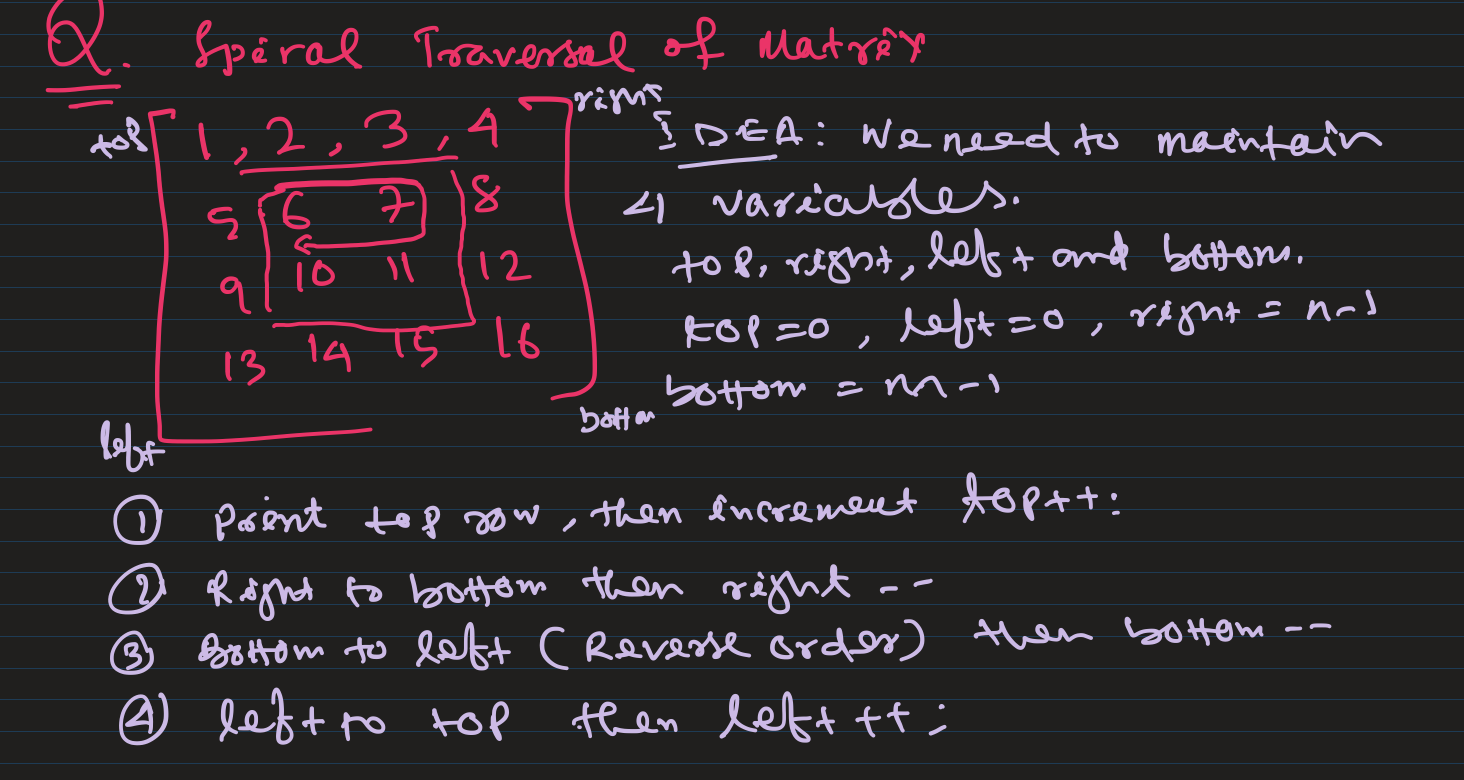 Q. Spiral Traversal of Matrix
top
1, 2, 3, 4
right
5 6 7 8
9 10 11 12
13 14 15 16
left
bottom
IDEA: We need to maintain
4 variables.
top, right, left and bottom.
top = 0, left = 0, right = n-1
bottom = m-1
① Print top row, then increment top++;
② Right to bottom then right --
③ Bottom to left (Reverse order) then bottom --
④ left to top then left ++;